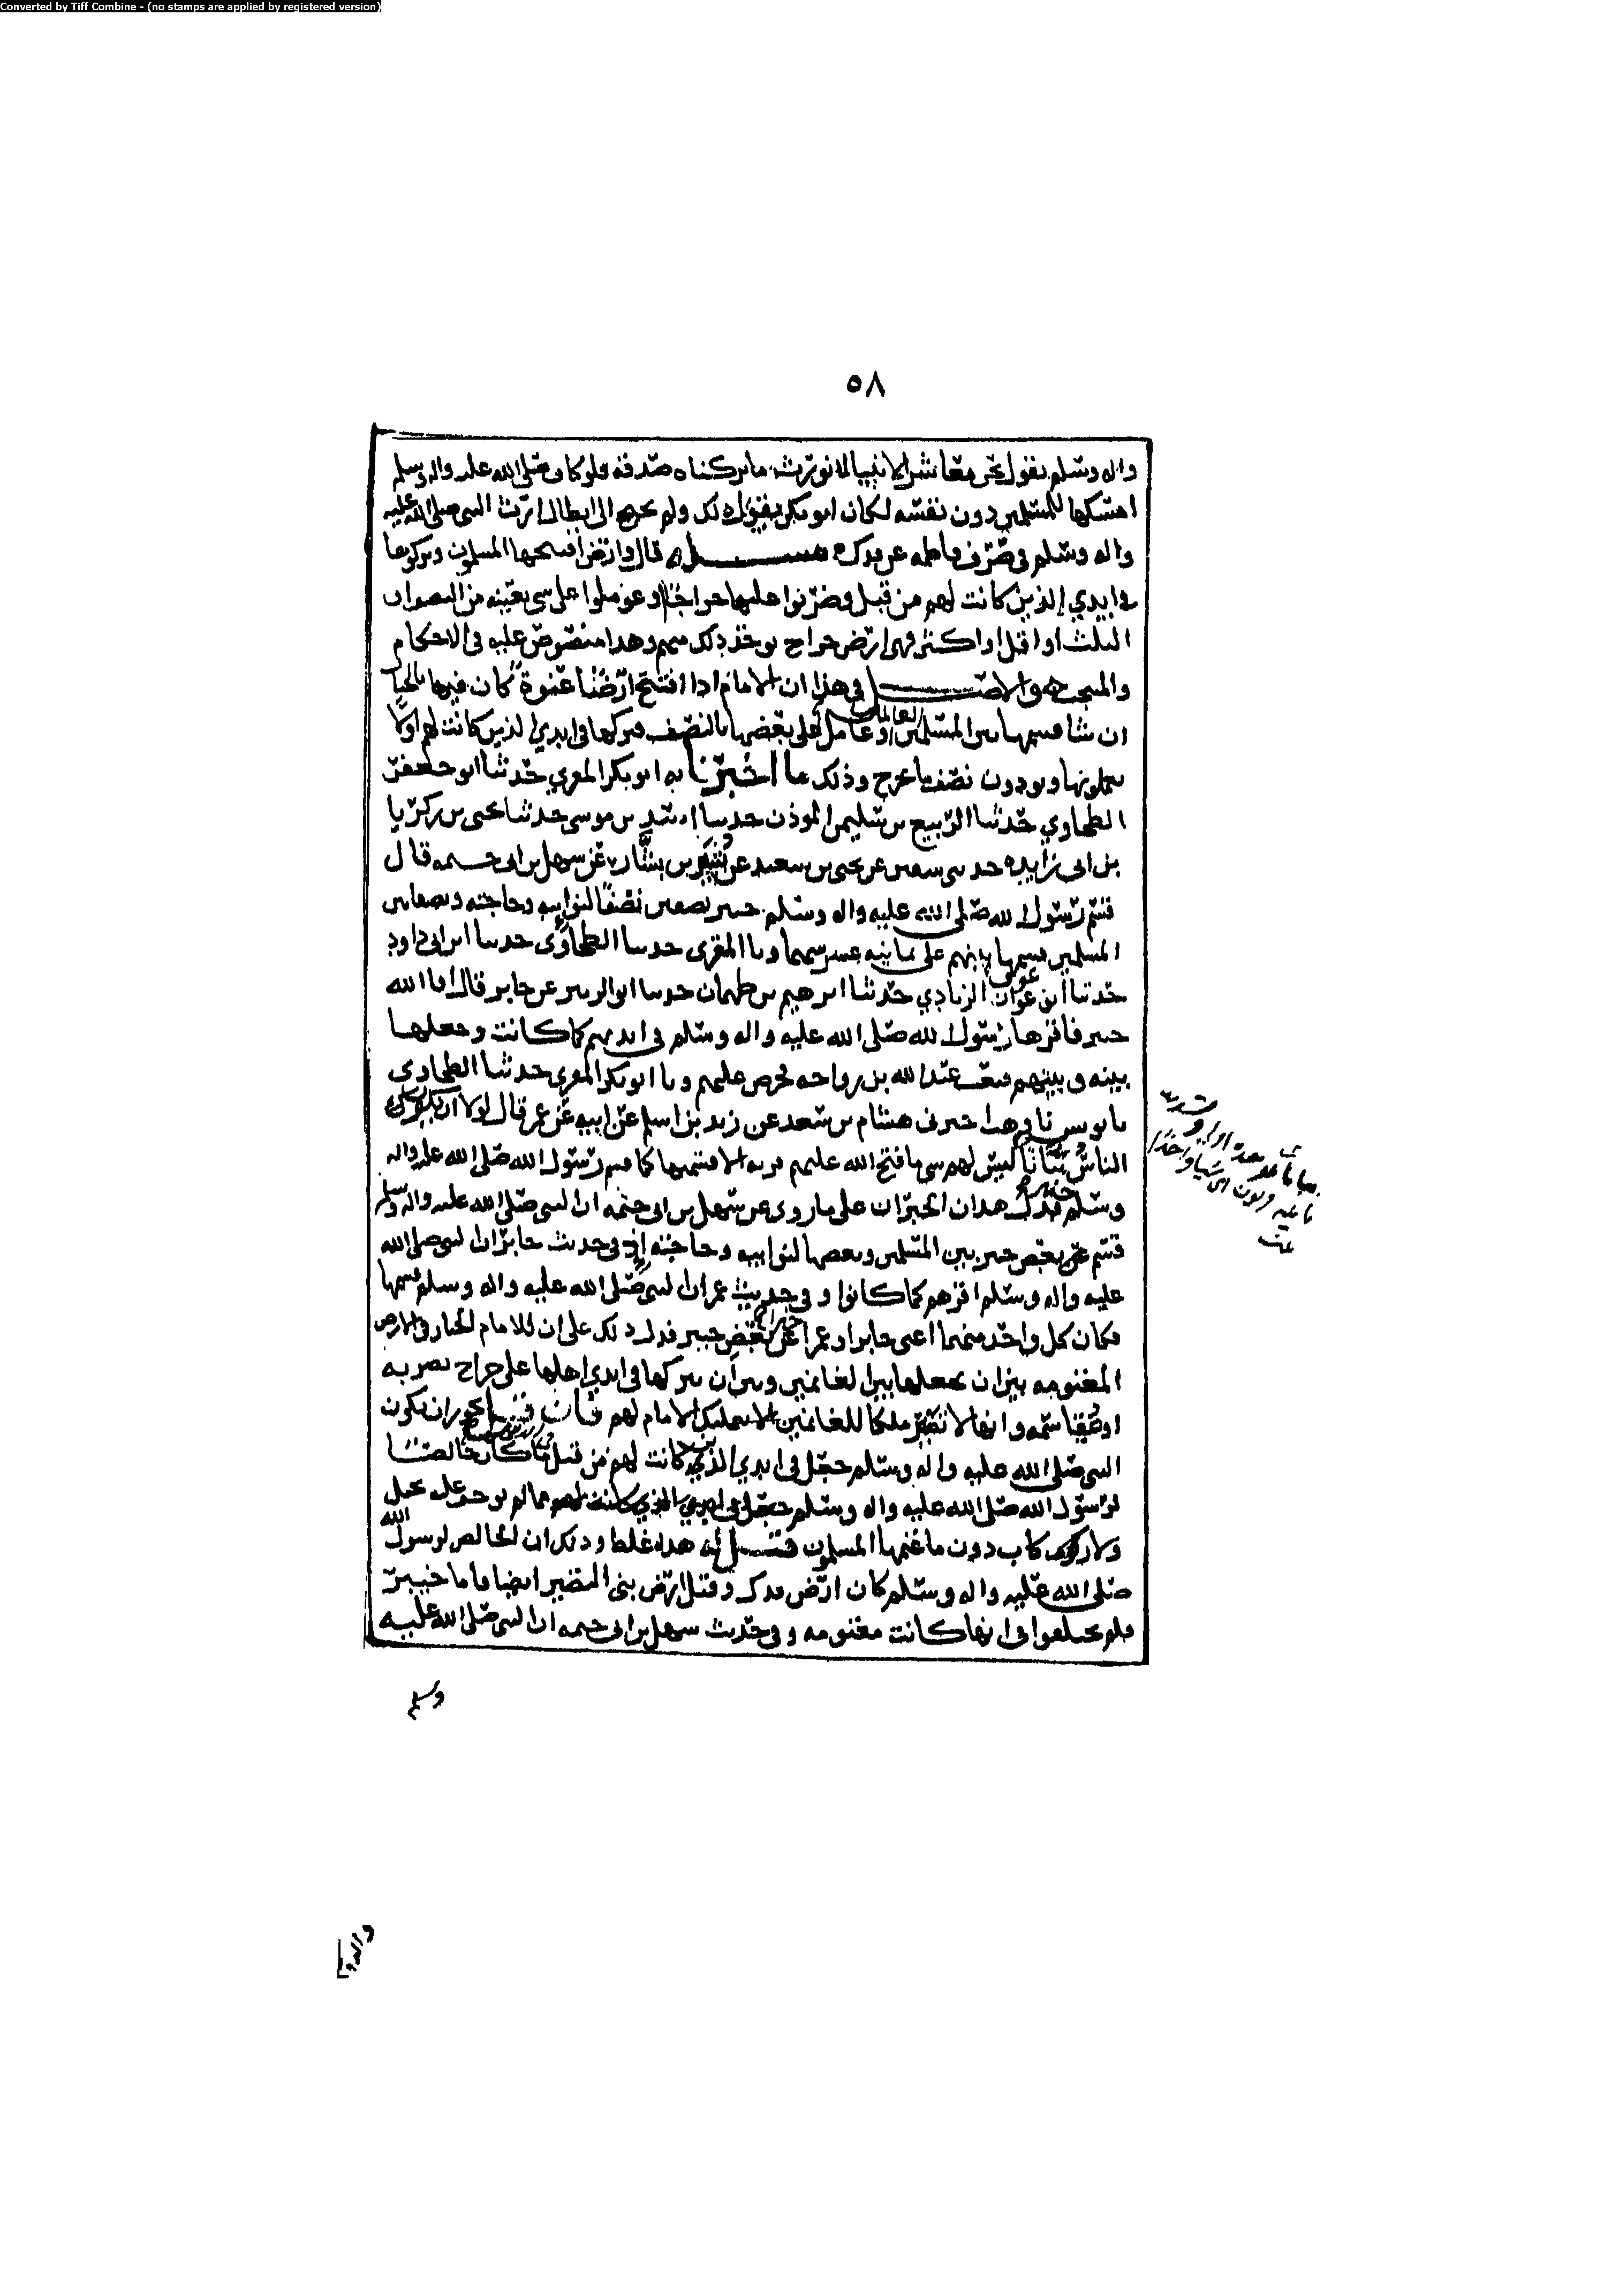 Converted by Tiff Combine - (no stamps are applied by registered version)
٥٨
واله وسلم يقول نحن معاشر الانبيا لا نورث ما تركناه صدقه فلو كان صلى الله عليه واله وسلم
امسكها للمسلمين دون نفسه لكان ابو بكر يقول ذلك ولم يحتج الى ابطال ارث النبي صلى الله عليه
واله وسلم وصرف فاطمه عن فدك مسـله قال وارض افتتحها المسلمون وتركوها
في ايدي الذين كانت لهم من قبل وضربوا عليها خراجا او عوملوا على شي بعينه من النصف او
الثلث او اقل او اكثر فهي ارض خراج يوخذ ذلك منهم وهذا منصوص عليه في الاحكام
والمنتخب والاصـل في هذا ان الامام اذا افتتح ارضا عنوة كان فيها بالخيار
ان شا قسمها بين المسلمين او عامل على بعضها بالنصف فتركها في ايدي الذين كانت لهم اولا
يعملونها ويودون نصف ما يخرج وذلك ما اخبرنا به ابو بكر المقري حدثنا ابو جعفر
الطحاوي حدثنا الربيع بن سليمن الموذن حدثنا اسد بن موسى حدثنا يحيى بن زكريا
بن ابي زايده حدثني سفين عن يحيى بن سعيد عن بشير بن يسار عن سهل بن ابي حثمه قال
قسم رسول الله صلى الله عليه واله وسلم خيبر نصفين نصفا لنوايبه وحاجته ونصفا بين
المسلمين قسمها بينهم على ثمانيه عشر سهما ونا المقري حدثنا الطحاوي حدثنا ابن ابي داود
حدثنا ابن عون الزيادي حدثنا ابرهيم بن طهمان حدثنا ابو الزبير عن جابر قال افا الله
خيبر فاقرها رسول الله صلى الله عليه واله وسلم في ايديهم كما كانت وجعلها
بينه وبينهم فبعث عبد الله بن رواحه يخرص عليهم ونا ابو بكر المقري حدثنا الطحاوي
نا يونس نا ابن وهب اخبرني هشام بن سعد عن زيد بن اسلم عن ابيه عن عمر قال لولا ان يكون
الناس ببانا ليس لهم شي ما فتح الله عليهم قريه الا قسمتها كما قسم رسول الله صلى الله عليه واله
وسلم خيبر فدل هذان الخبران على ما روي عن سهل بن ابي حثمه ان النبي صلى الله عليه واله وسلم
قسم بعض خيبر بين المسلمين وبعضها لنوايبه وحاجته اذ في حديث جابر ان النبي صلى الله
عليه واله وسلم اقرهم كما كانوا وفي حديث عمر ان النبي صلى الله عليه واله وسلم قسمها
فكان كل واحد منهما اعني جابرا وعمر اخبر عن بعض خيبر فدل ذلك على ان للامام الخيار في الارض
المغنومه بين ان يجعلها بين الغانمين وبين ان يتركها في ايدي اهلها على خراج يضربه
او مقاسمه وانها لا تصير ملكا للغانمين الا بتمليك الامام لهم فان قيل يجوز ان يكون
النبي صلى الله عليه واله وسلم جعل في ايدي الذين كانت لهم من قبل ما كان خالصا
لرسول الله صلى الله عليه واله وسلم مما لم يوجف عليه بخيل
ولا ركاب دون ما غنمها المسلمون قيـل له هذا غلط وذلك ان الخالص لرسول الله
صلى الله عليه واله وسلم كان ارض فدك وقيل ارض بني النضير ايضا فاما خيبر
فلم يختلفوا في انها كانت مغنومه وفي حديث سهل بن ابي حثمه ان النبي صلى الله عليه
وسلم